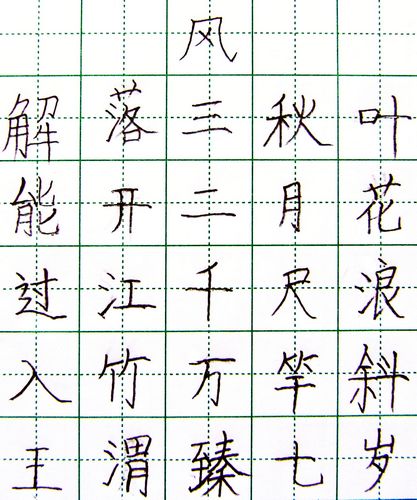 风
解落三秋叶
能开二月花
过江千尺浪
入竹万竿斜
王渭臻七岁